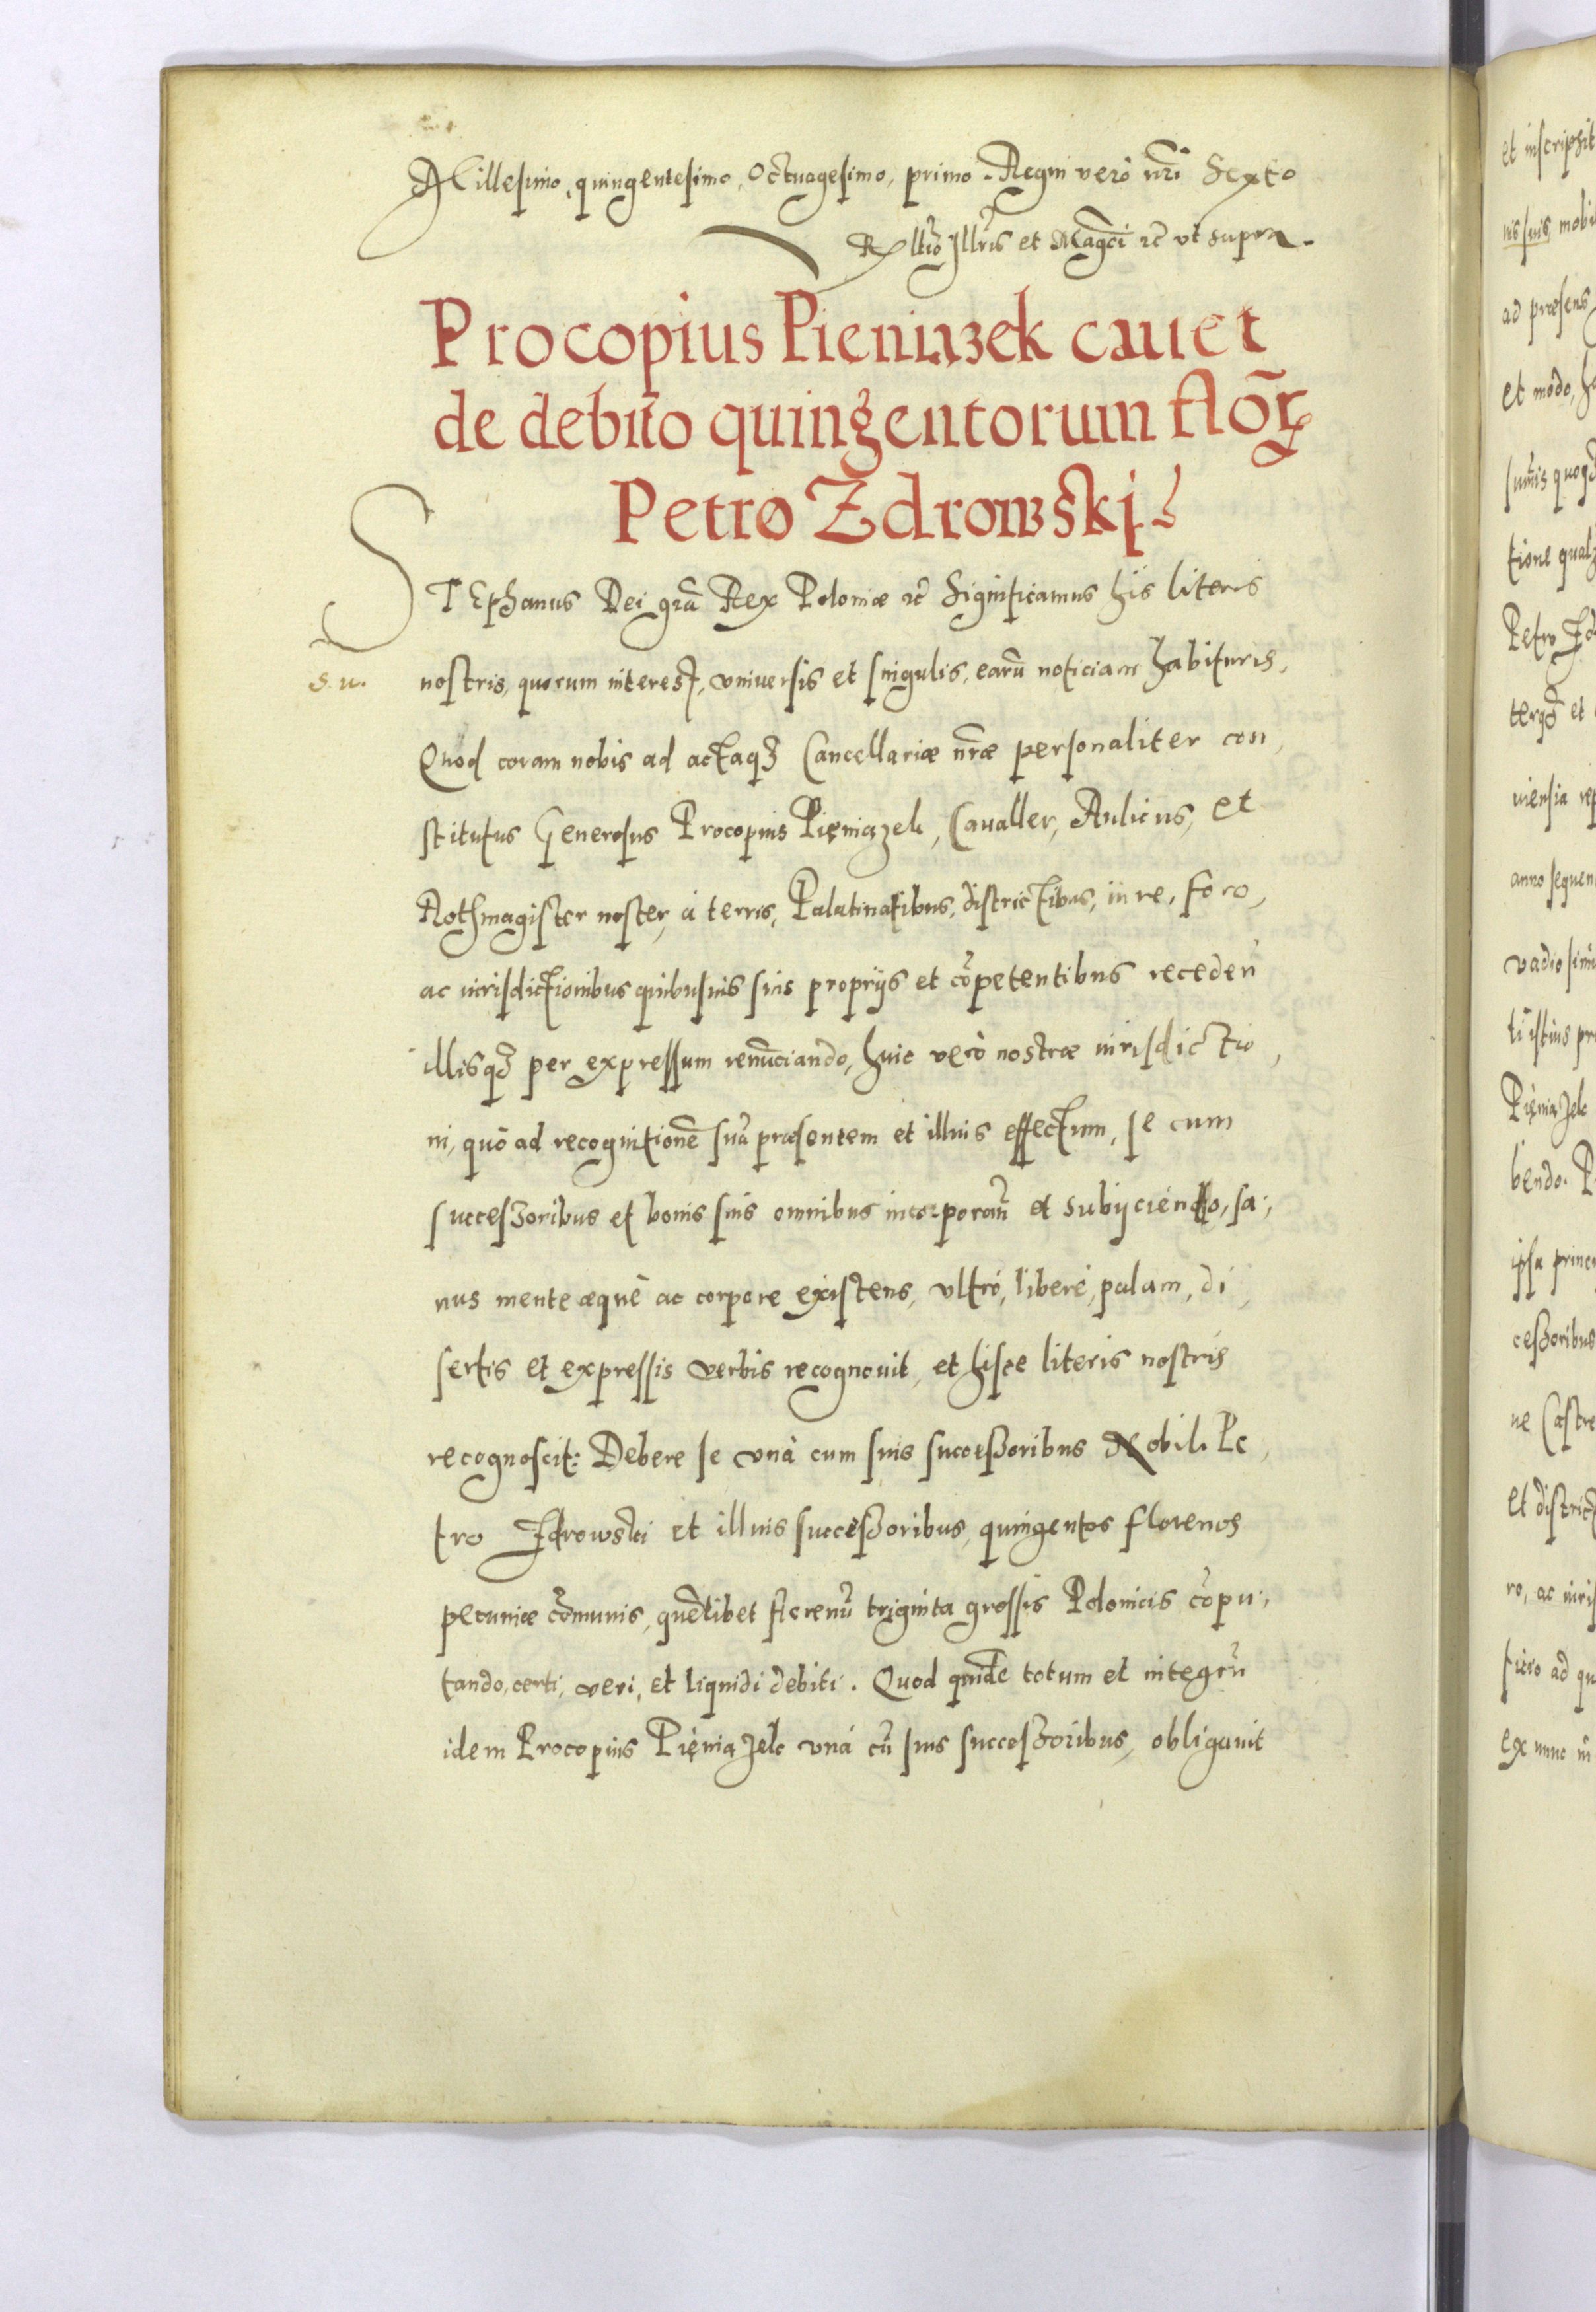 Millesimo, quingentesimo, Octuagesimo, primo. Regni verò nrĩ Sexto
Rellĩo Illr̃is et Magcĩ rc̃ vt supra.
Procopius Pieniązek cauet
de debito quingentorum flor̃
Petro Zdrowskj
STEphanus Dei grã Rex Poloniæ rc̃ Significamus his literis
s. n. nostris, quorum interest, vniuersis et singulis, earũ noticiam habituris,
Quod coram nobis ad actaqȝ Cancellariæ nr̃æ personaliter con,
stitutus Generosus Procopius Pięniązek, Caualler, Aulicus, et
Rothmagister noster, à terris, Palatinatibus, districtibus, iure, foro,
ac iurisdictionibus quibusuis suis proprijs et cõpetentibus recedeñ
illisqȝ per expressum renũciando, huic verò nostræ iurisdictio,
ni, quò ad recognitionẽ suã præsentem et illius effectum, se cum
successoribus et bonis suis omnibus incorporañ et subijciendo, sa,
nus mente æquè ac corpore existens, vltrò, liberè, palam, di,
sertis et expressis verbis recognouit, et hisce literis nostris
recognoscit: Debere se vnà cum suis successoribus Nobil. Pe,
tro Zdrowski et illius successoribus, quingentos florenos
pecuniæ cõmunis, quẽlibet florenũ triginta grossis Polonicis cõpu,
tando, certi, veri, et liquidi debiti. Quod quidẽ totum et integrũ
idem Procopius Pięniązek vnà cũ suis successoribus, obligauit
et inscripsit
nis suis mobi
ad præsens
et modo, h
sum̃is quoqȝ
tione qual
Petro Zd
terqȝ et
uiensia rep
anno sequen
vadio simi
ti istius pr
Pięniązek
bendo. P
ipsa princ
cessoribus
ne Castre
et district
ro, ac iuris
tuero ad qu
ex nunc in